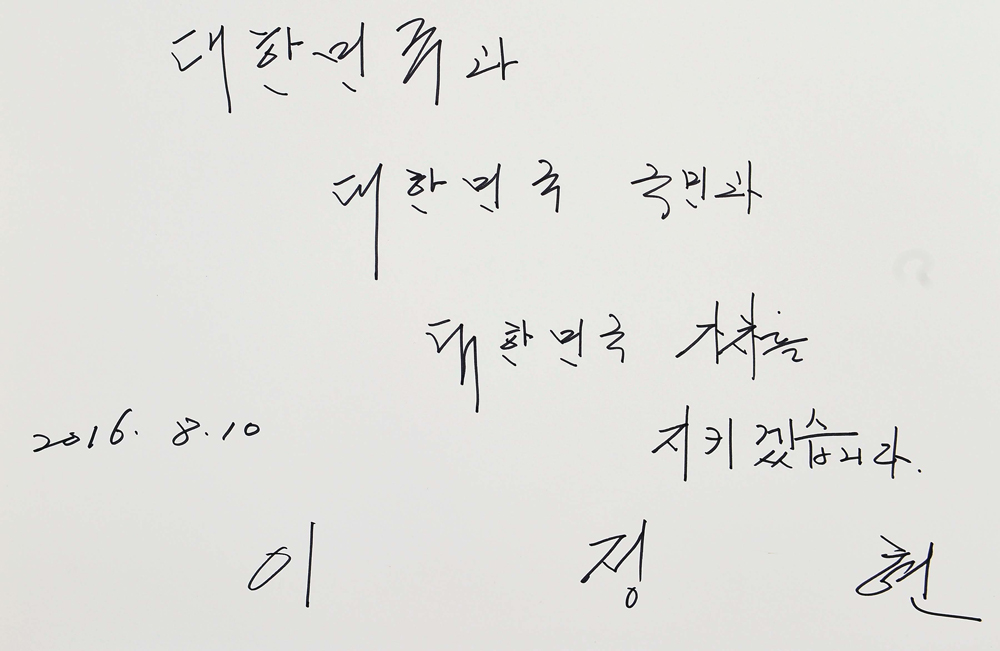 대한민국과
대한민국 국민과
대한민국 가치를
2016. 8.10 지키겠습니다.
이 정 현